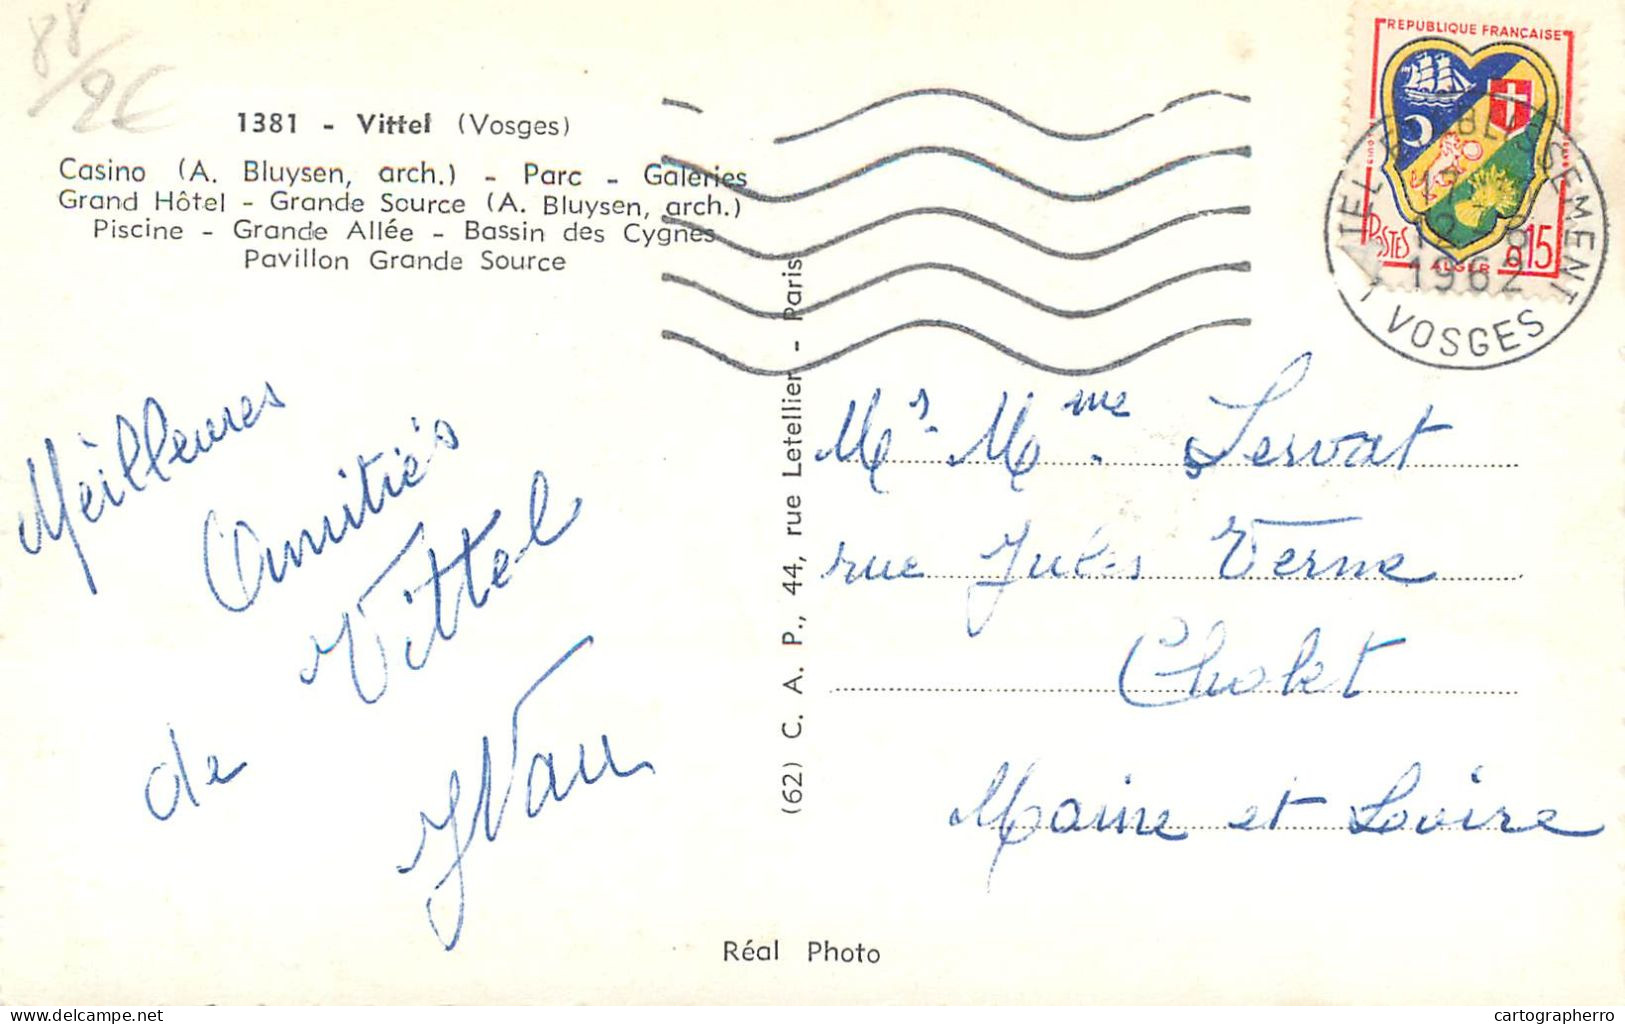 88
/2€
1381 - Vittel (Vosges)
Casino (A. Bluysen, arch.) - Parc - Galeries
Grand Hôtel - Grande Source (A. Bluysen, arch.)
Piscine - Grande Allée - Bassin des Cygnes
Pavillon Grande Source
REPUBLIQUE FRANÇAISE
POSTES
ALGER
0,15
1962
VOSGES
Meilleures
Amitiés
Vittel
de
Yvan
(62) C. A. P., 44, rue Letellier - Paris
Mr. Mme. Servat
rue Jules Verne
Cholet
Maine et Loire
Réal Photo
delcampe.net
cartographerro